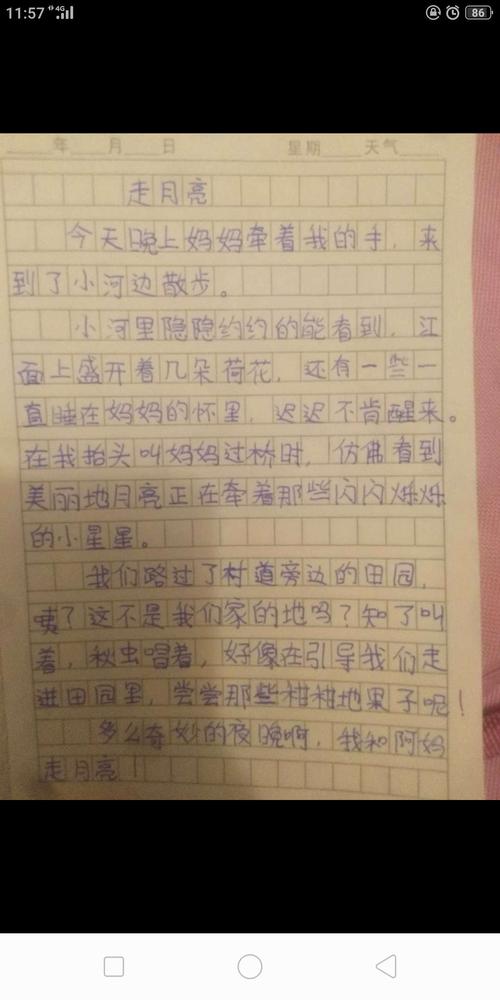 11:57 4G 86
年 月 日 星期 天气
走月亮
今天晚上妈妈牵着我的手，来
到了小河边散步。
小河里隐隐约约的能看到，江
面上盛开着几朵荷花，还有一些一
直睡在妈妈的怀里，迟迟不肯醒来。
在我抬头叫妈妈过桥时，仿佛看到
美丽地月亮正在牵着那些闪闪烁烁
的小星星。
我们路过了村道旁边的田园，
咦？这不是我们家的地吗？知了叫
着，秋虫唱着，好像在引导我们走
进田园里，尝尝那些柑柑地果子呢！
多么奇妙的夜晚啊，我和阿妈
走月亮！